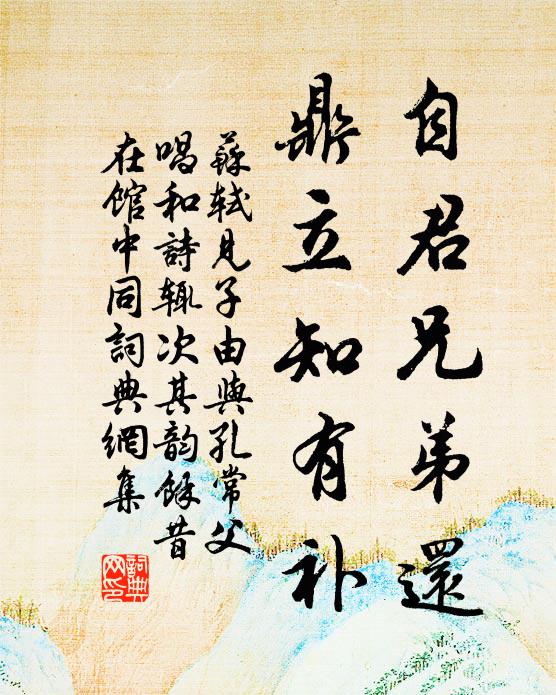 自君兄弟還
鼎立知有补
蘇轼見子由與孔常父
唱和詩辄次其韵餘昔
在馆中同詞典網集
詞典网印